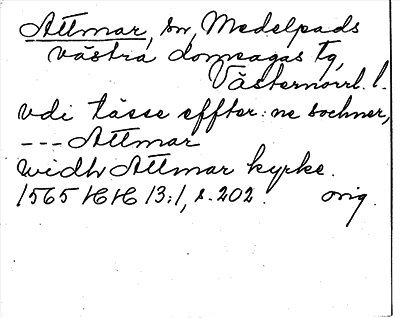 Attmar, sn, Medelpads
västra domsagas tg,
Västernorrl. l.
vdi tässe effter:ne sochner,
--- Attmar
widh Attmar kyrke.
1565 HH 13:1, s. 202. orig.